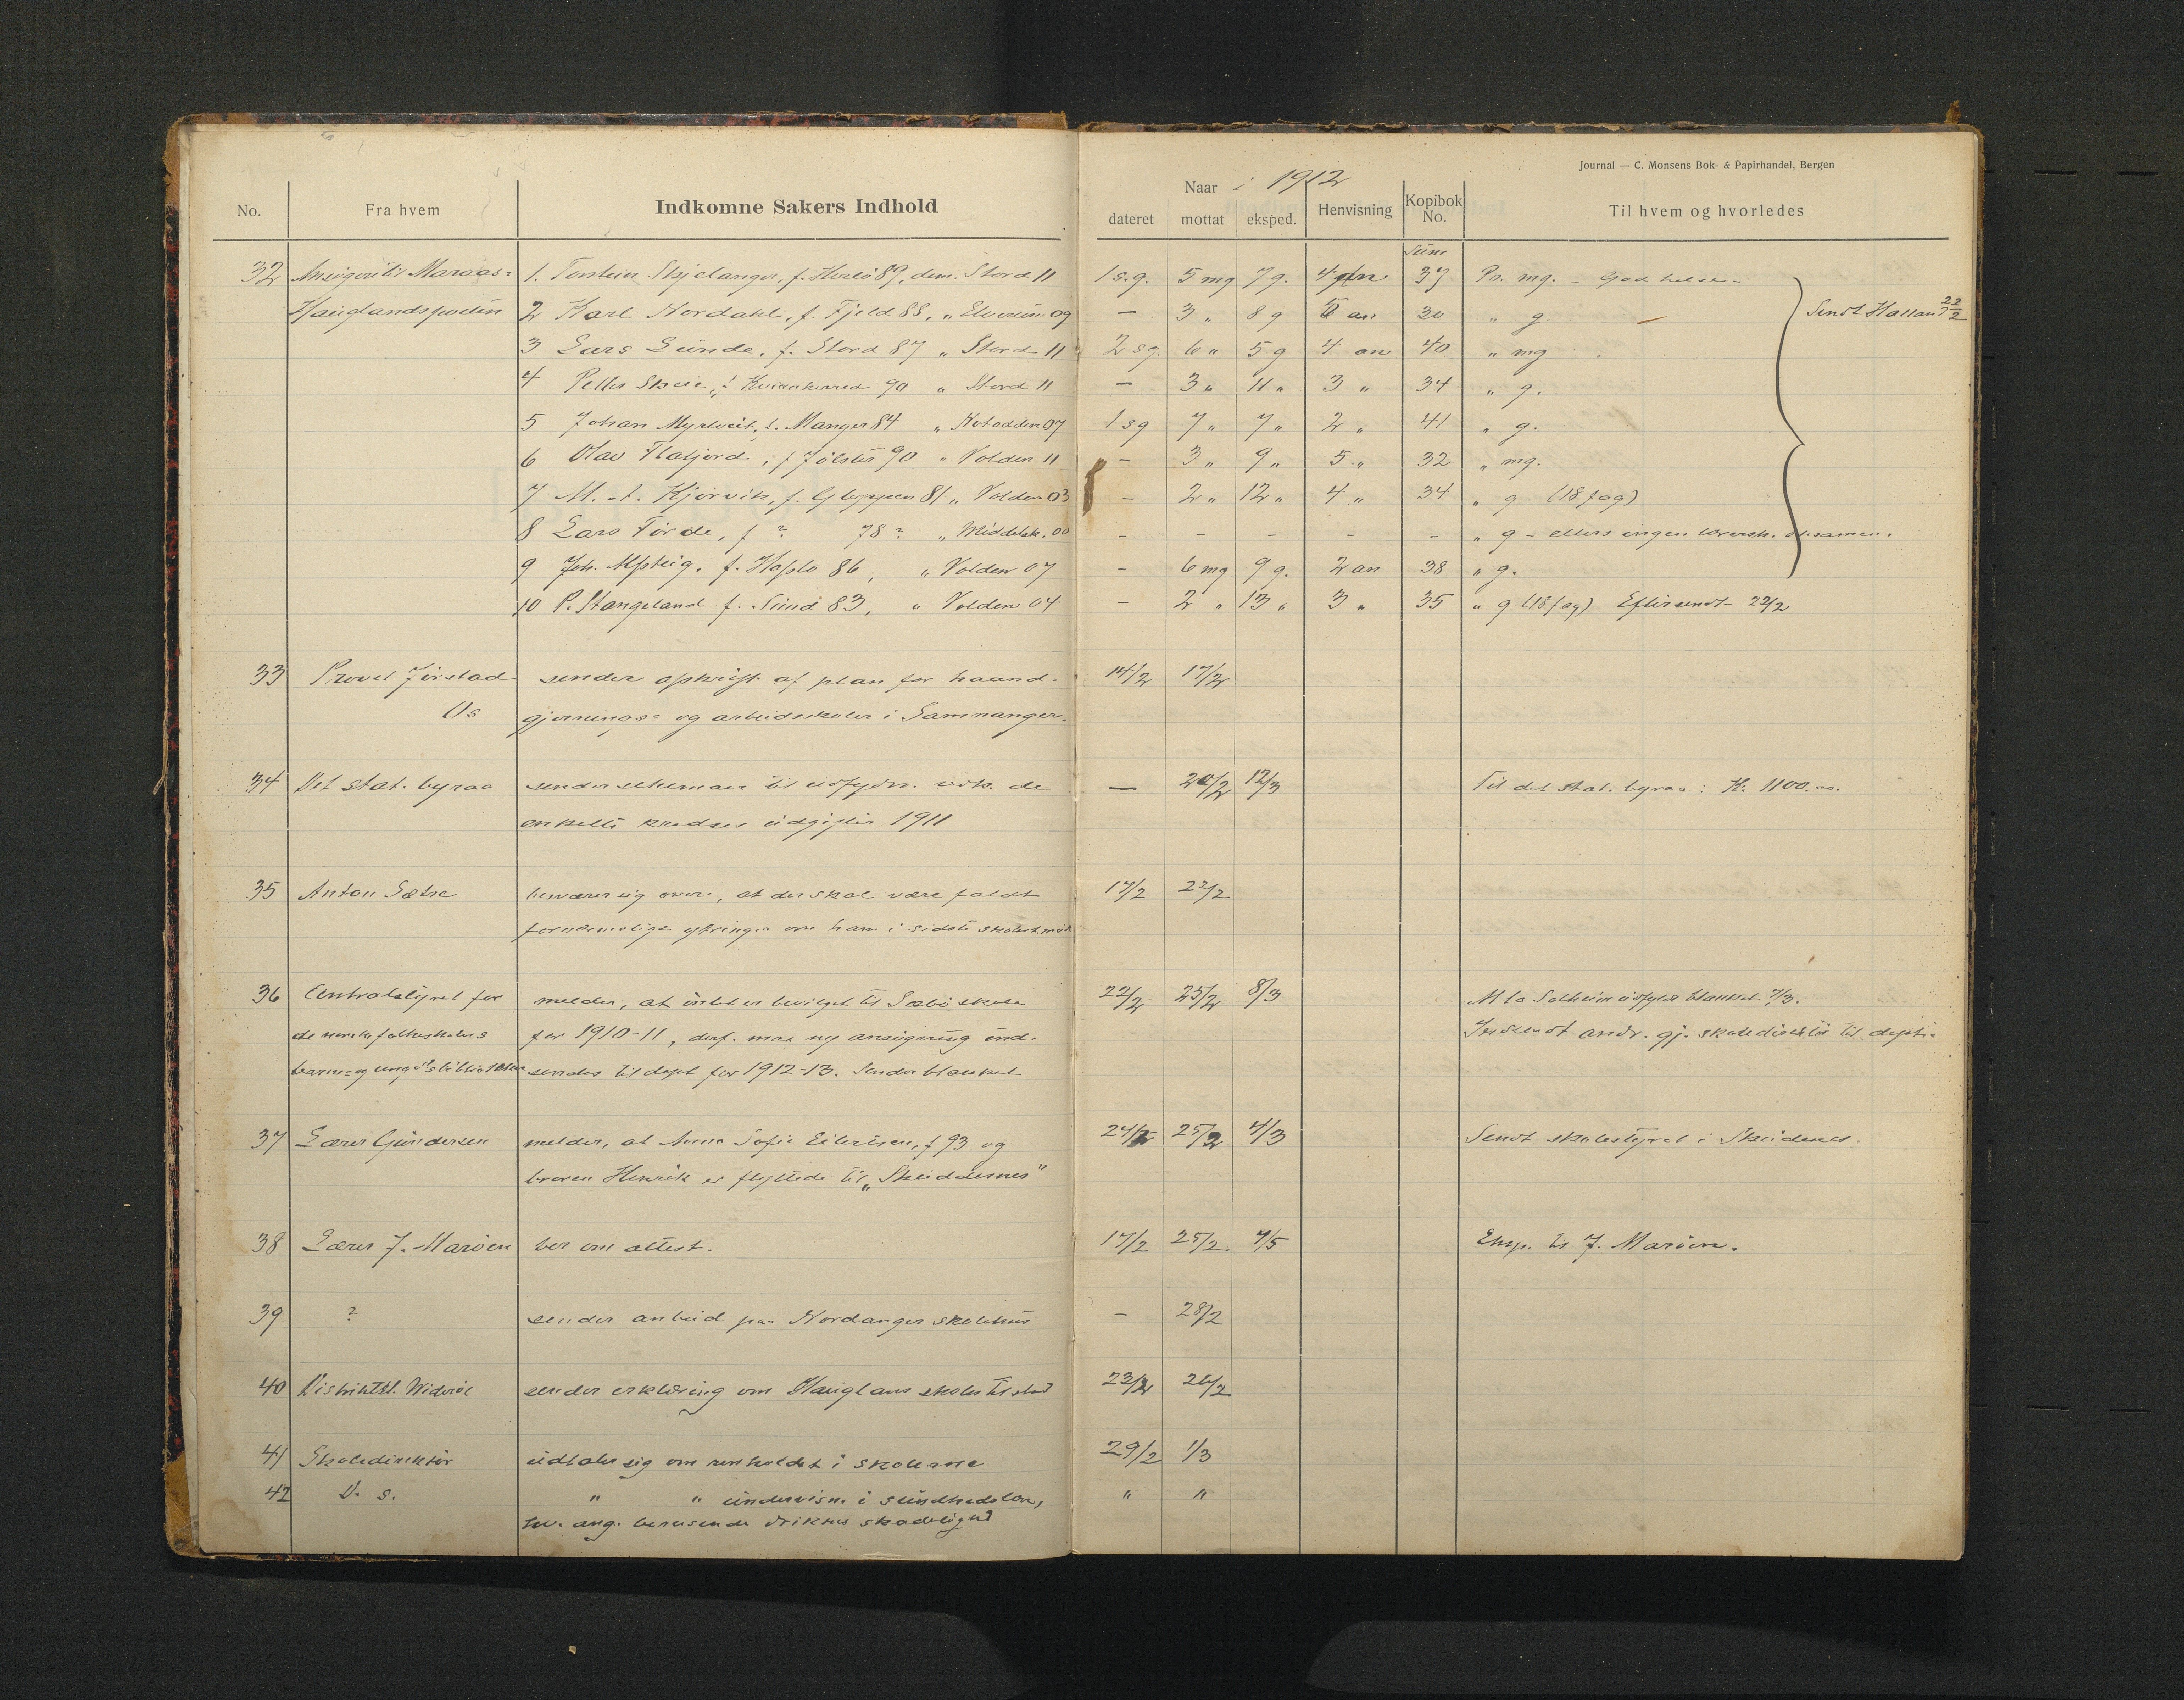 Journal — C. Monsens Bok- & Papirhandel, Bergen
No. Fra hvem Indkomne Sakers Indhold Naar i 1912 dateret mottat eksped. Henvisning Kopibok No. Til hvem og hvorledes
Sum
32 Ansögere til Maraas= 1. Torstein Skjelanger, f. Herlö 89, dim. Stord 11 1 s.g. 5 mg 7 g. 4 an 37 Pr. mg. - God helse -
Hauglandsposten 2 Karl Nordahl, f. Fjeld 88, „ Elverum 09 — 3 „ 8 g 5 an 30 „ g. Sendt Halland 22/2
3 Lars Lunde, f. Stord 87 „ Stord 11 2 sg. 6 „ 5 g 4 an 40 „ mg
4 Petter Skeie, f. Kvinnherred 90 „ Stord 11 — 3 „ 11 „ 3 „ 34 „ g.
5 Johan Myrtveit, f. Manger 84 „ Notodden 07 1 sg 7 „ 7 „ 2 „ 41 „ g.
6 Olav Flatjord, f Jölster 90 „ Volden 11 - 3 „ 9 „ 5 „ 32 „ mg.
7 M. A. Hjörvik, f. Gloppen 81 „ Volden 03 - 2 „ 12 „ 4 „ 34 „ g (18 fag)
8 Lars Förde, f ? 78 ? „ Middelsk. 00 - - - - - „ g - ellers ingen lærersk. eksamen.
9 Joh. Alsteig. f. Haslo 86, „ Volden 07 - 6 mg 9 g. 2 an 38 „ g.
10 P. Stangeland f. Sund 83, „ Volden 04 - 2 „ 13 „ 3 „ 35 „ g (18 fag) Eftersendt 22/2
33 Provst Jörstad sender afskrift af plan for haand- 14/2 17/2
Os gjernings= og arbeidsskoler i Samnanger.
34 Det stat. byraa sender skemaer til udfyldn. vedk. de — 20/2 12/3 Til det stat. byraa: Kr. 1100.00.
enkelte kredses udgifter 1911
35 Anton Sætre besværer sig over, at der skal være faldt 17/2 22/2
fornærmelige ytringer om ham i sidste skolest.möte
36 Centralstyret for melder, at intet er bevilget til Sæbö skole 22/2 25/2 8/3 Solheim udfyldt blanket 7/3.
de norske folkeskolers for 1910-11, derf. maa ny ansögning ind- Indsendt andr. gj. skoledirektör til dept.
barne= og ungd.sbiblioteker sendes til dept for 1912-13. Sender blanket
37 Lærer Gundersen melder, at Anna Sofie Eilertsen, f 93 og 24/2 25/2 4/3 Sendt skolestyret i Skeidenes.
broren Henrik er flyttede til „Skeiddenes"
38 Lærer J. Maröen ber om attest. 17/2 25/2 4/5 Eksp. til J. Maröen.
39 ? sender anbud paa Nordanger skolehus - 28/2
40 Distriktsl. Wideröe sender erklæring om Haugland skoles tilstand 23/2 26/2
41 Skoledirektör udtaler sig om renholdet i skolerne 29/2 1/3
42 D. s. „ „ undervisn. i sundhedslære, „ „
ang. berusende drikkes skadelighed